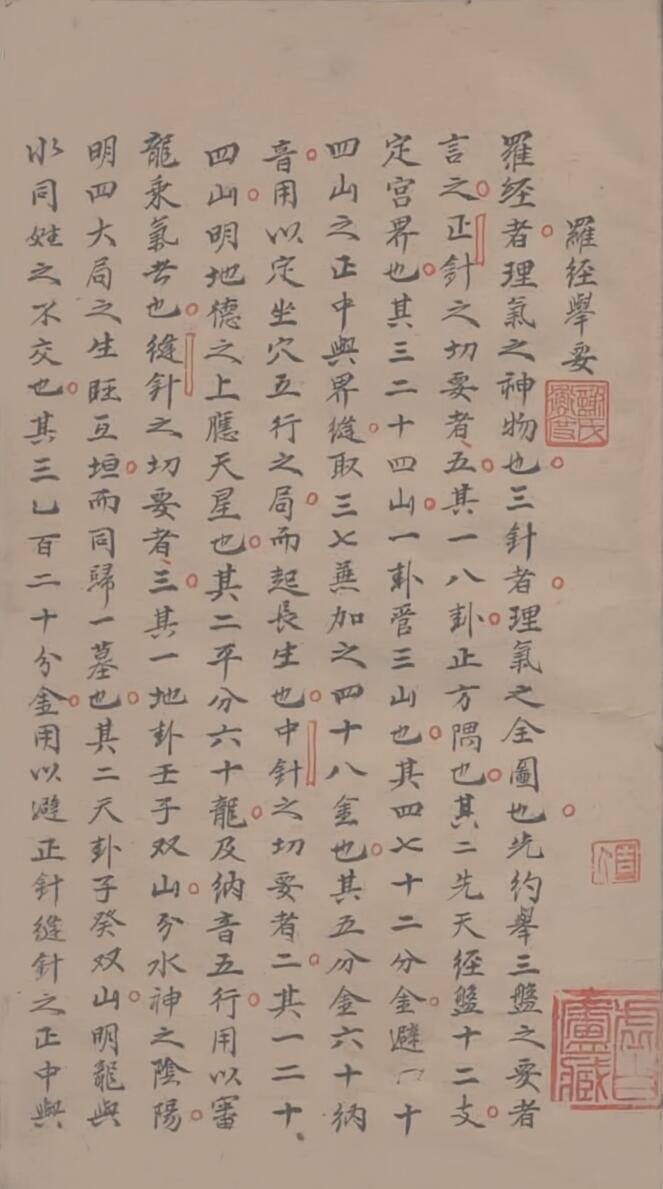 羅經舉要
羅經者理氣之神物也三針者理氣之全圖也先約舉三盤之要者
言之正針之切要者五其一八卦正方隅也其二先天經盤十二支
定宮界也其三二十四山一卦管三山也其四七十二分金避二十
四山之正中與界縫取三七無加之四十八金也其五分金六十納
音用以定坐穴五行之局而起長生也中針之切要者二其一二十
四山明地德之上應天星也其二平分六十龍及納音五行用以審
龍乘氣者也縫針之切要者三其一地卦壬子双山分水神之陰陽
明四大局之生旺互垣而同歸一墓也其二天卦子癸双山明龍與
水同姓之不交也其三乙百二十分金用以避正針縫針之正中與